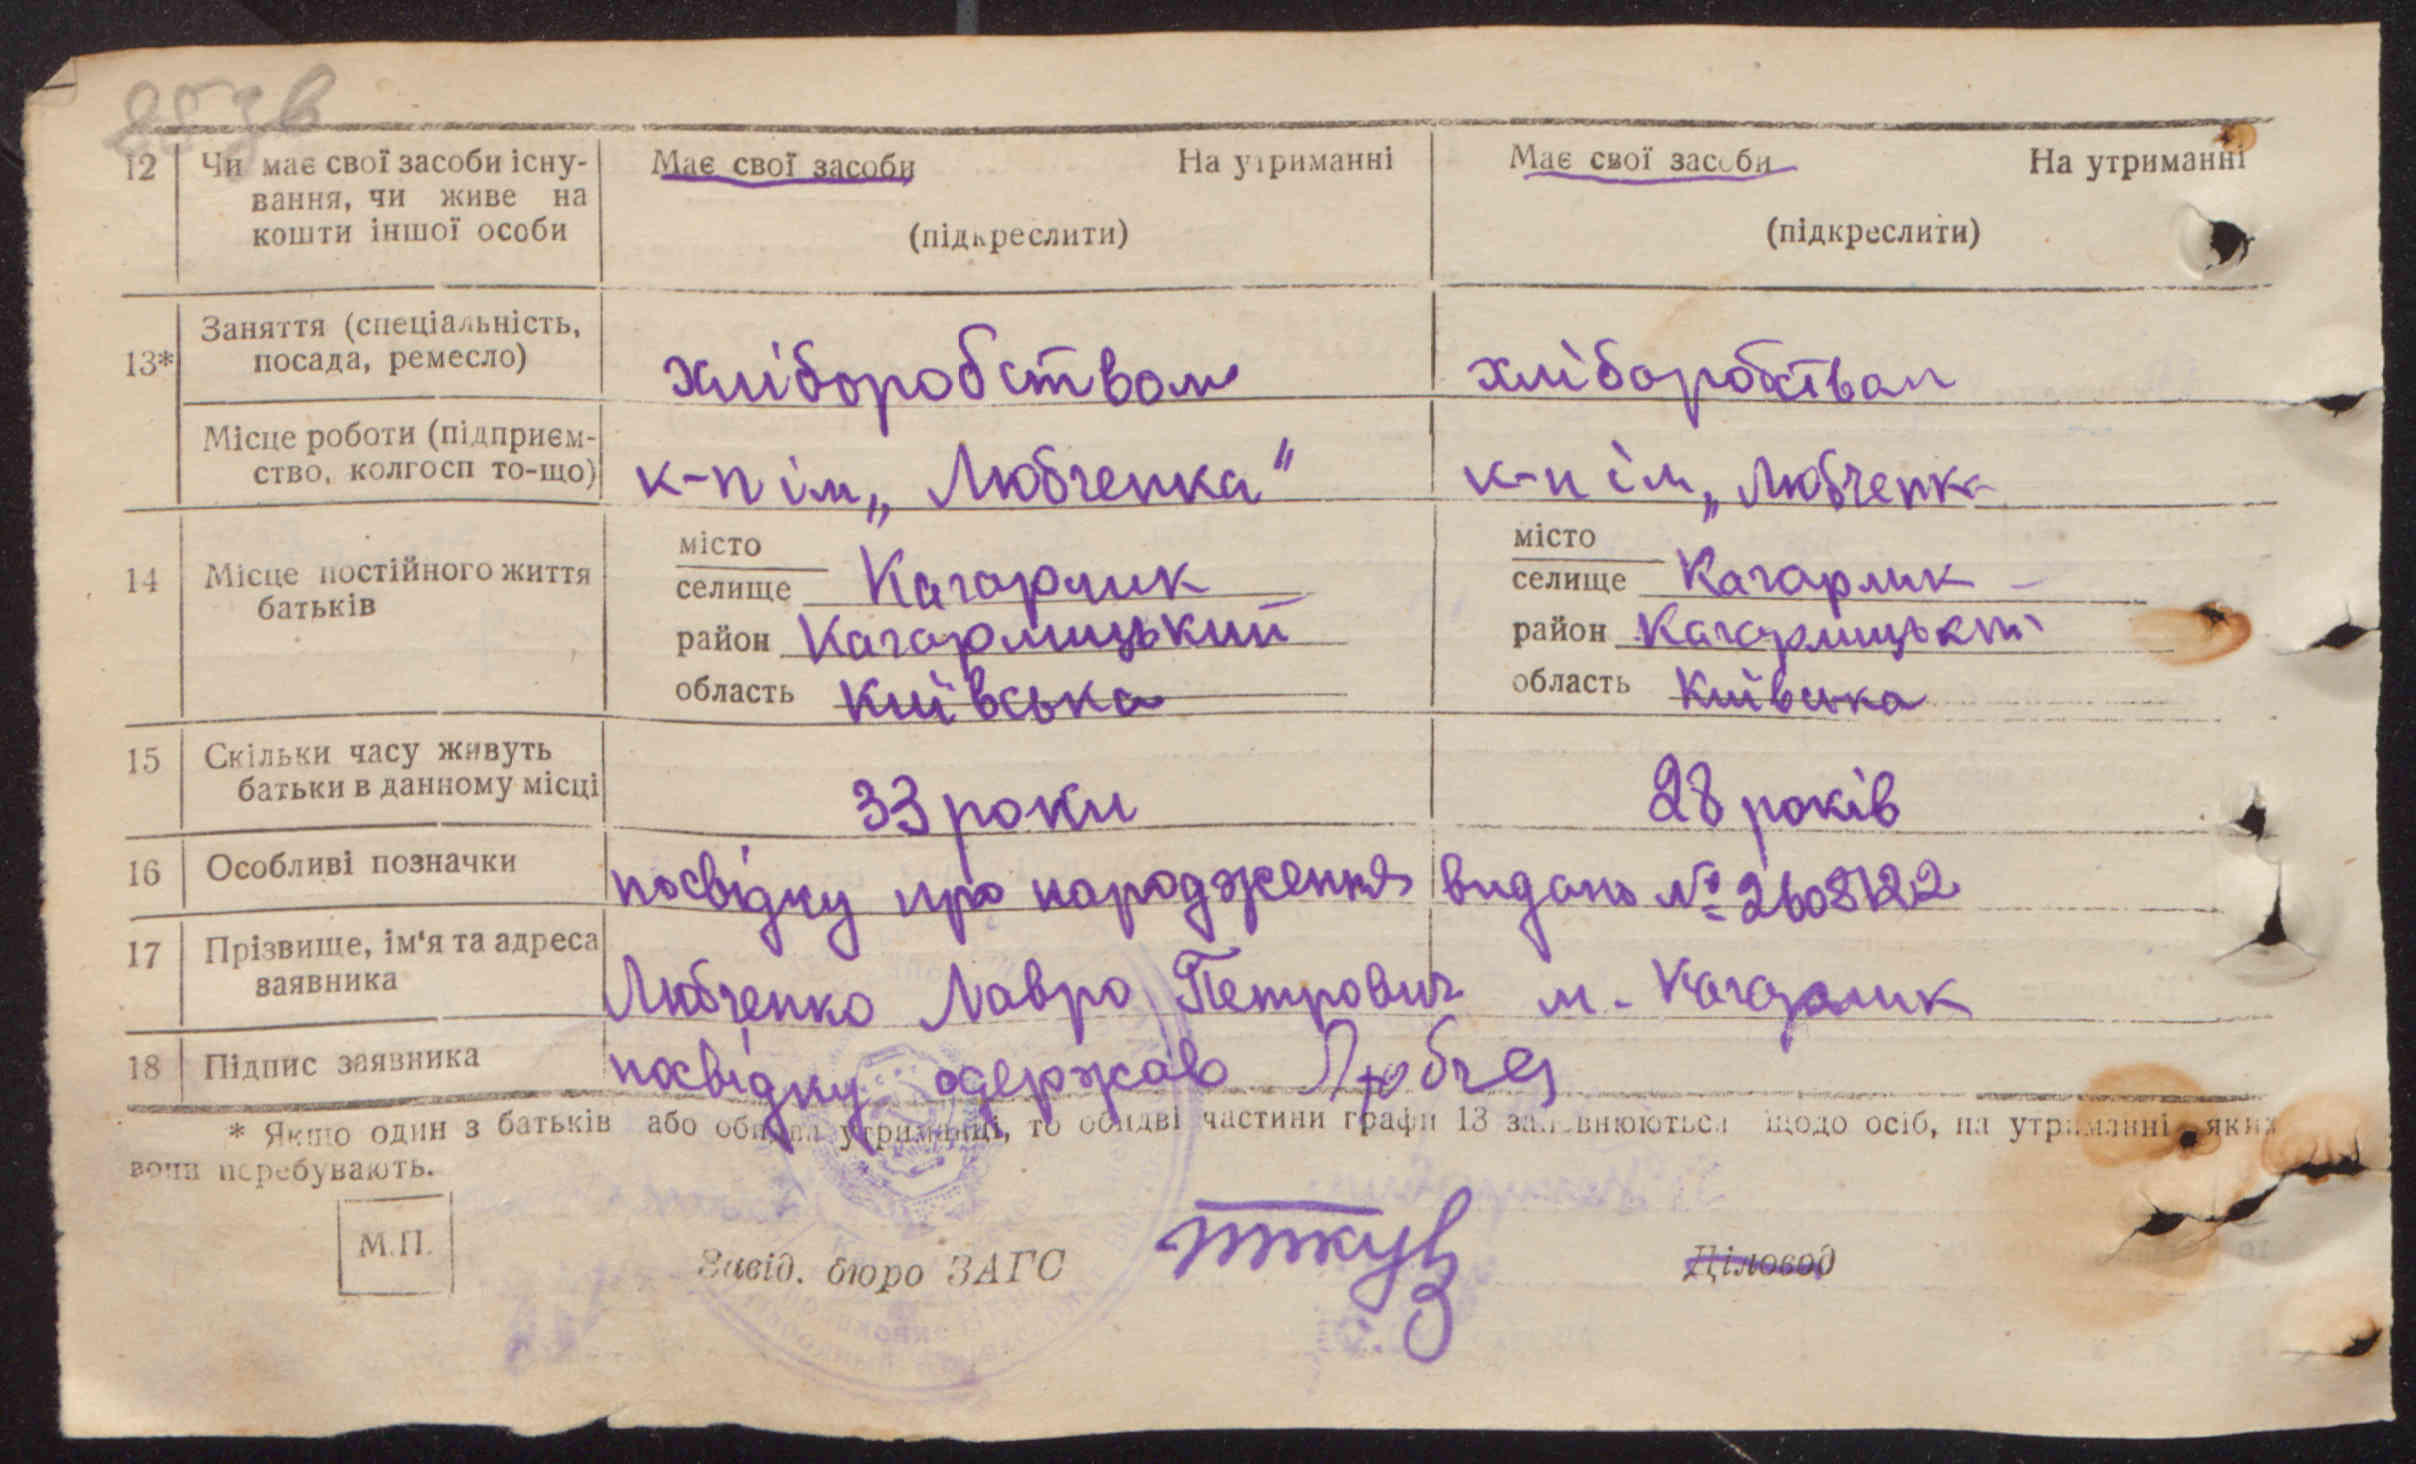 25 зв
12 Чи має свої засоби існу- Має свої засоби На утриманні Має свої засоби На утриманні
вання, чи живе на
кошти іншої особи (підкреслити) (підкреслити)
Заняття (спеціальність,
13* посада, ремесло) хліборобством хліборобством
Місце роботи (підприєм-
ство, колгосп то-що) к-п ім „Любченка" к-п ім „Любченка
місто місто
14 Місце постійного життя селище Кагарлик селище Кагарлик
батьків район Кагарлицький район Кагарлицький
область Київська область Київська
15 Скільки часу живуть
батьки в данному місці 33 роки 28 років
16 Особливі позначки посвідку про народження видано № 2608122
17 Прізвище, ім'я та адреса
заявника Любченко Лавро Петрович м. Кагарлик
18 Підпис заявника посвідку одержав Любче
* Якщо один з батьків або обидва утриманці, то обидві частини графи 13 заповнюються щодо осіб, на утриманні яких
вони перебувають.
М.П.
Завід. бюро ЗАГС Діловод